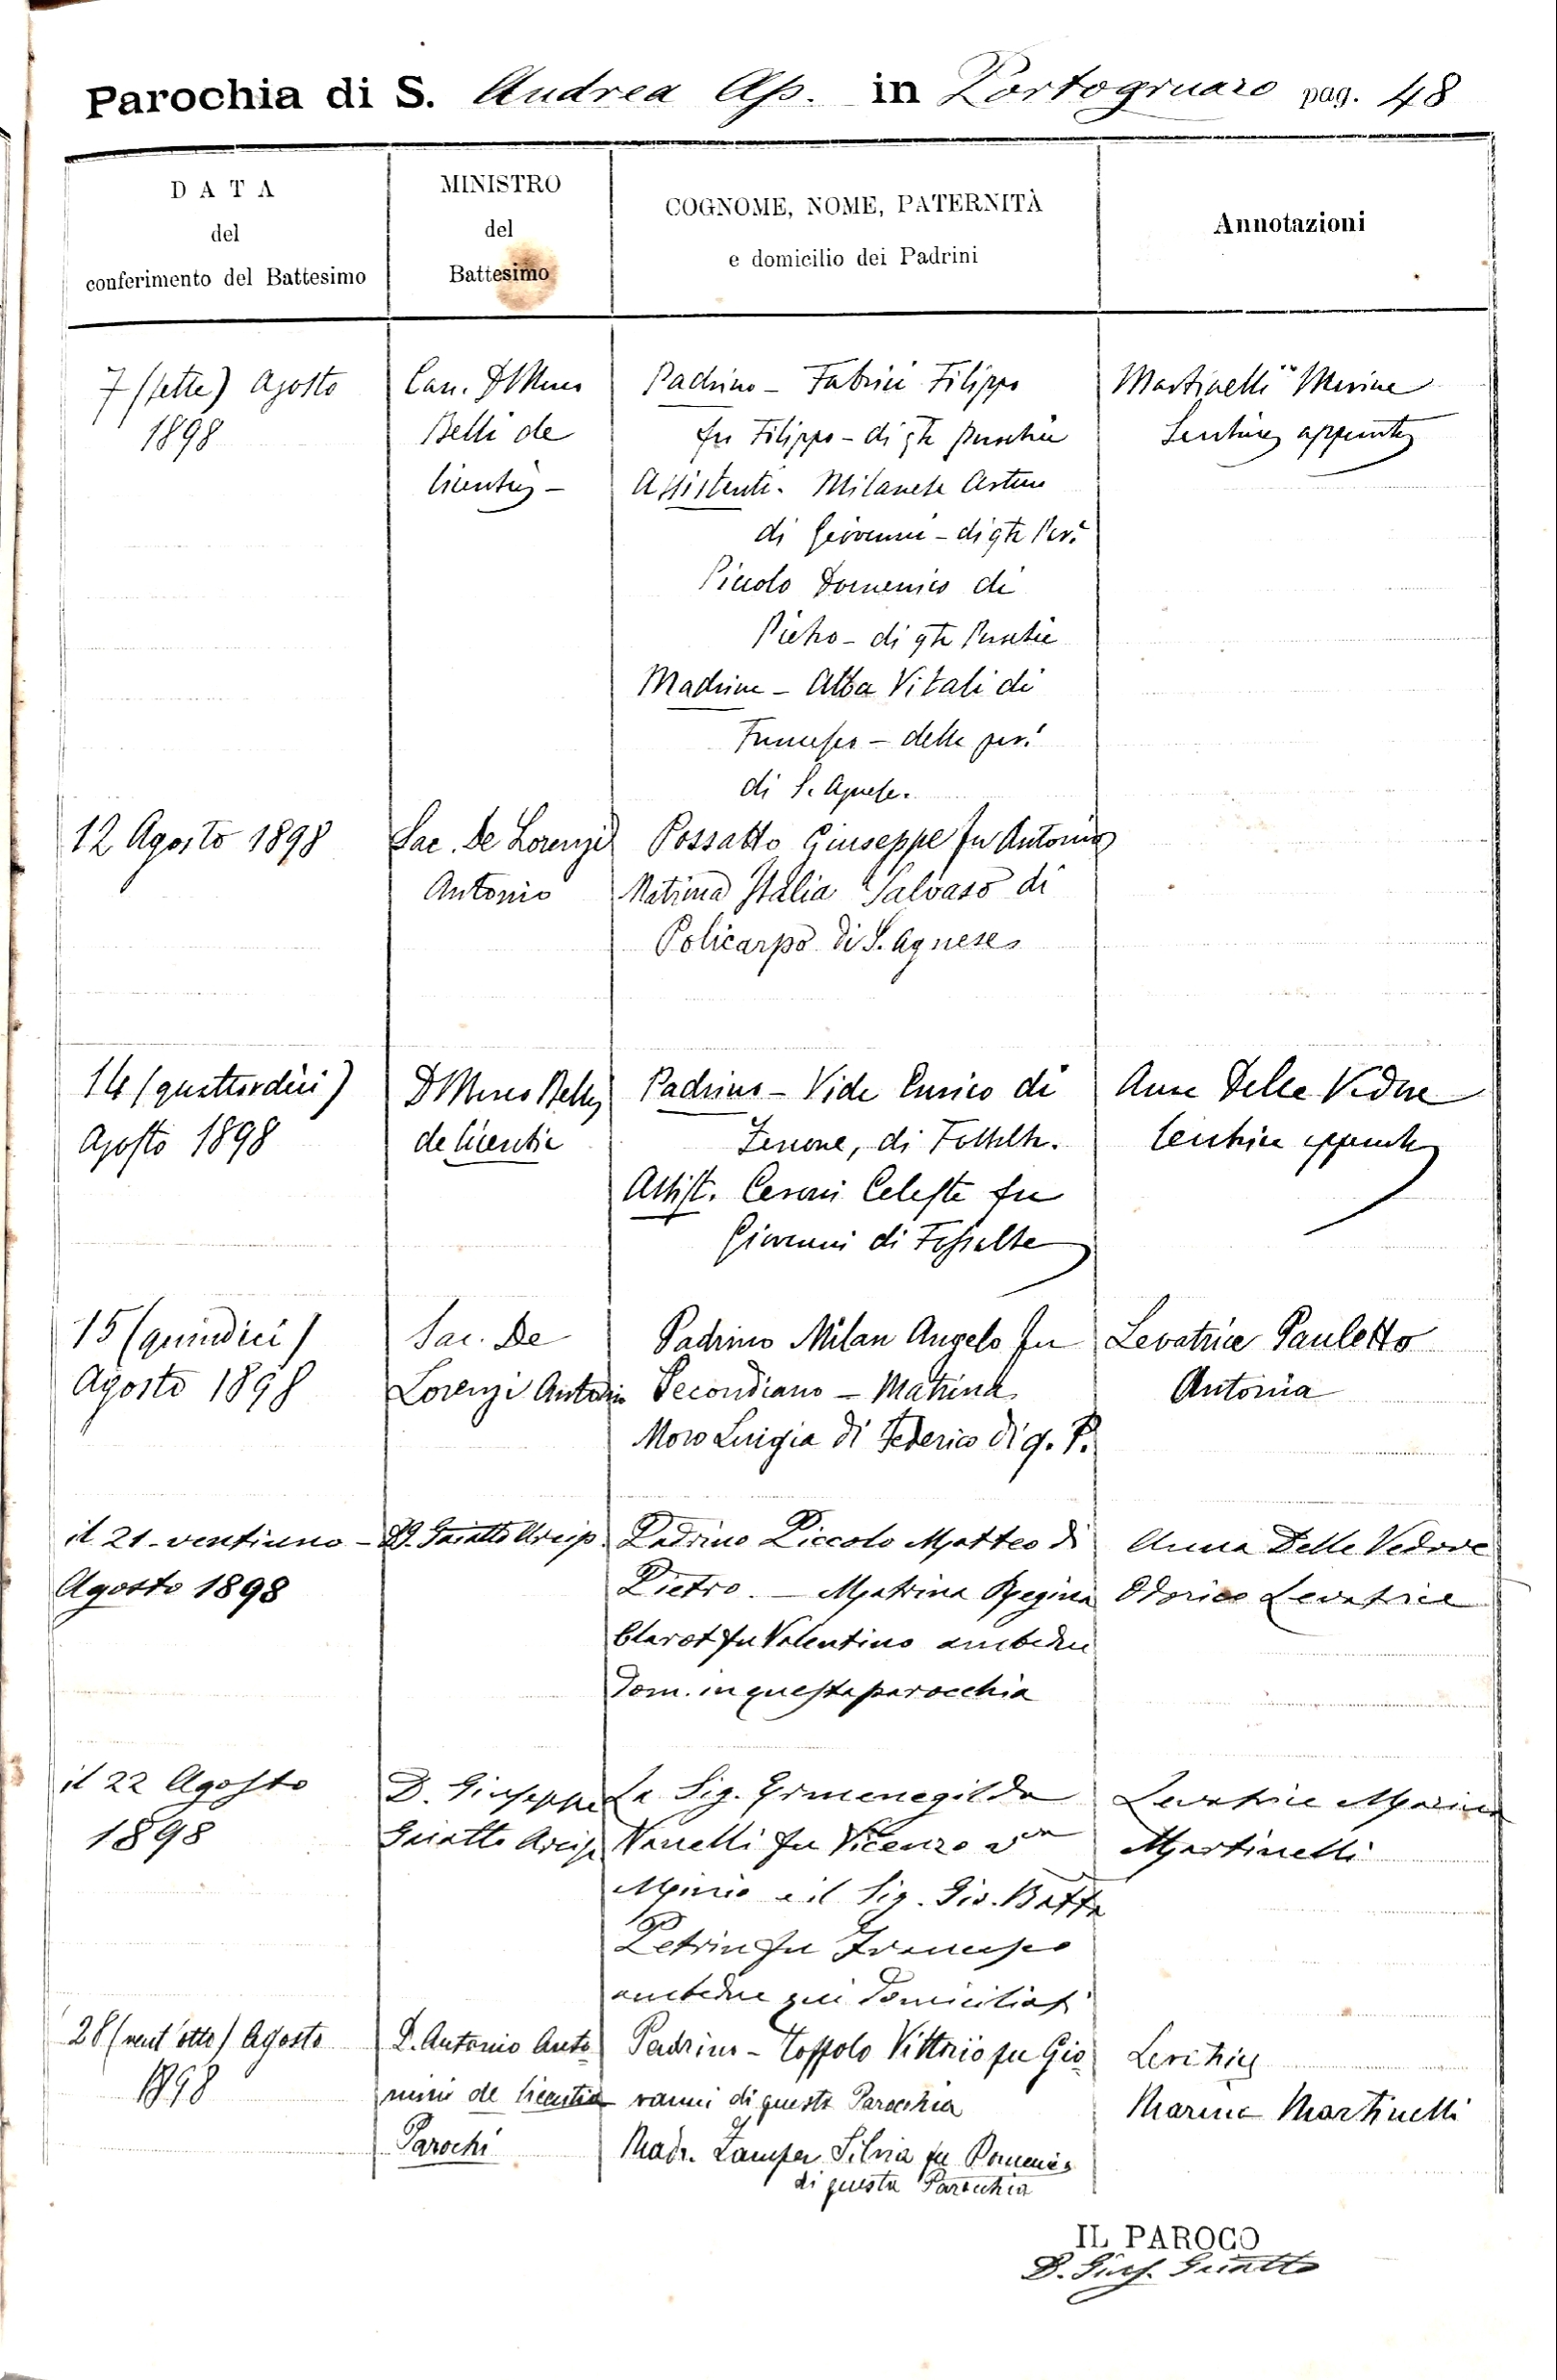 Parochia di S. Andrea Ap. in Portogruaro pag. 48
DATA
del
conferimento del Battesimo
MINISTRO
del
Battesimo
COGNOME, NOME, PATERNITÀ
e domicilio dei Padrini
Annotazioni
7 (sette) Agosto
1898
Can. D
Belli de
licentia –
Padrino – Fabrici Filippo
fu Filippo – di
Assistenti. Milanese Arturo
di Giovanni – di
Piccolo Domenico di
Pietro – di
Madrina – Alba Vitali di
Francesco – della par.
di S. Agnese.
Martinelli Marina
12 Agosto 1898
Sac. De Lorenzi
Antonio
Possatto Giuseppe fu Antonio
Matrina Italia Salvaso di
Policarpo di S. Agnese
14 (quattordici)
Agosto 1898
de licentia
Padrino – Vida Enrico di
Zenone, di
Assist. Celeste fu
Giovanni di Fossalta
Anna Delle Vedove
15 (quindici)
Agosto 1898
Sac. De
Lorenzi Antonio
Padrino Milan Angelo fu
Secondiano – Matrina
Moro Luigia di Federico di q. P.
Levatrice Pauletto
Antonia
il 21 - ventiuno –
Agosto 1898
D. Giatto Arcip.
Padrino Piccolo Matteo di
Pietro. – Matrina Regina
Clarot fu Valentino ambedue
Dom. in questa parocchia
Anna Delle Vedove
Odorico Levatrice
il 22 Agosto
1898
D. Giuseppe
Arcip
La Sig. Ermenegilda
fu Vicenzo
e il Sig. Gio. Batta
Petrin fu Francesco
ambedue qui Domiciliati
Levatrice Marina
Martinelli
28 (vent'otto) Agosto
1898
D. Antonio Anto
de licentia
Parochi
Padrino – Toffolo Vittorio fu Gio
vanni di questa Parocchia
Madr. Zamper Silvia fu Domenico
di questa Parocchia
Marina Martinelli
IL PAROCO
D. Gius.